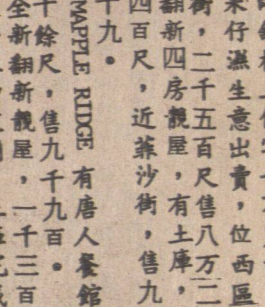 仔濕生意出賣，位西區
街，二千五百尺售八万二
翻新四房靚屋，有土庫，
四百尺，近菲沙街，售九
十九。
MAPPLE RIDGE 有唐人餐館
十餘尺，售九千九百。
全新翻新靚屋，一千三百